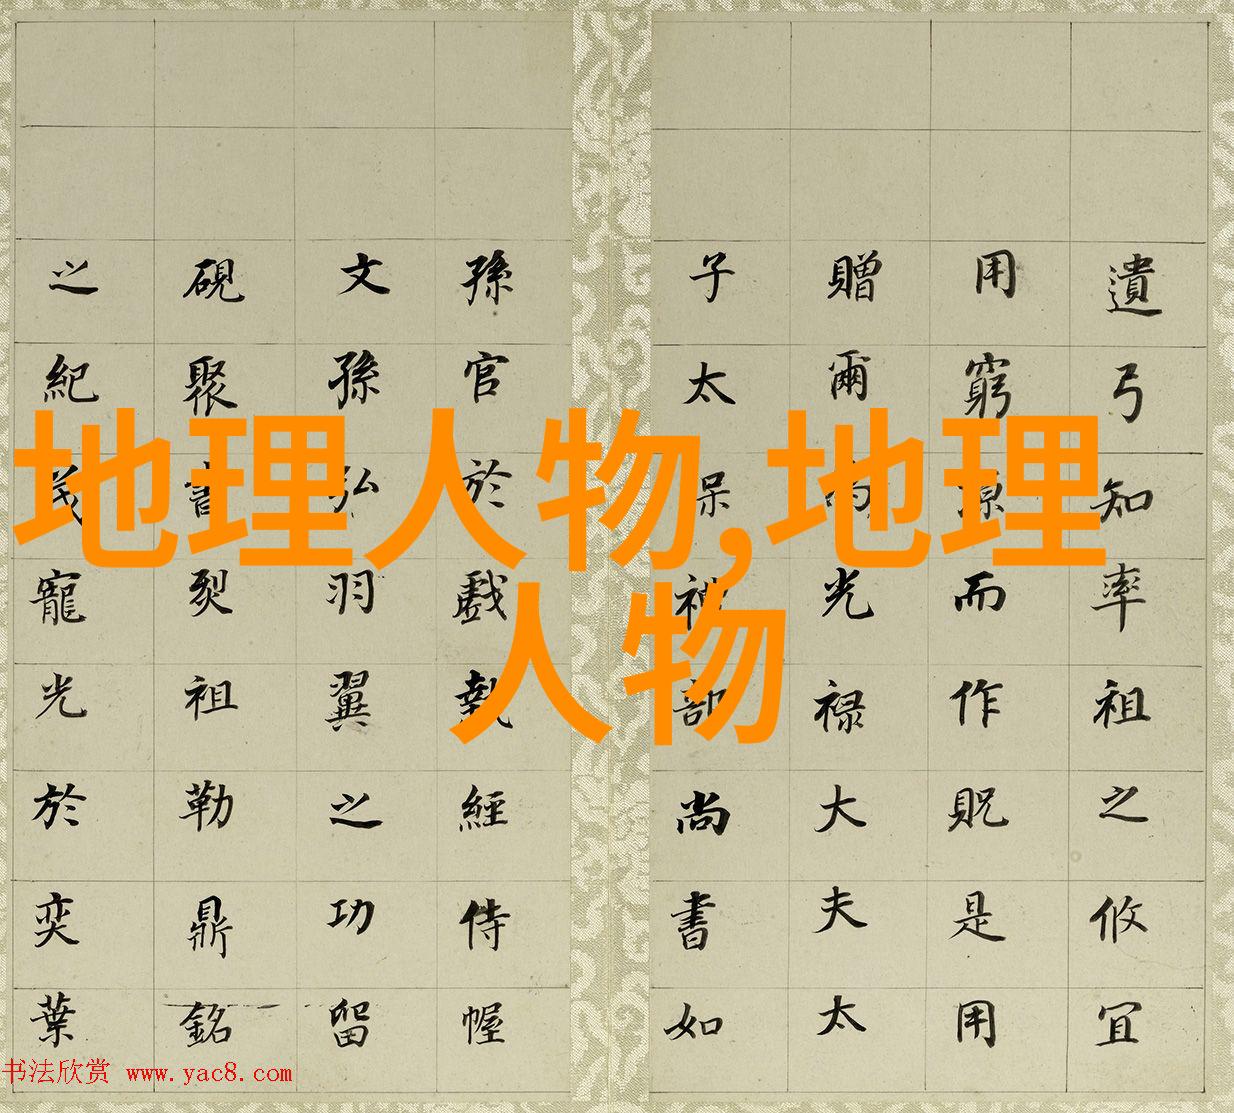 地理人物,地理
人物
遺弓知率祖之攸宜
用窮源而作貺是用
贈爾為光禄大夫太
子太保禮部尚書如
孫官於戲執經侍幄
文孫弘羽翼之功留
硯聚書裂祖勒鼎銘
之紀茂寵光於奕葉
书法欣赏 www.yac8.com